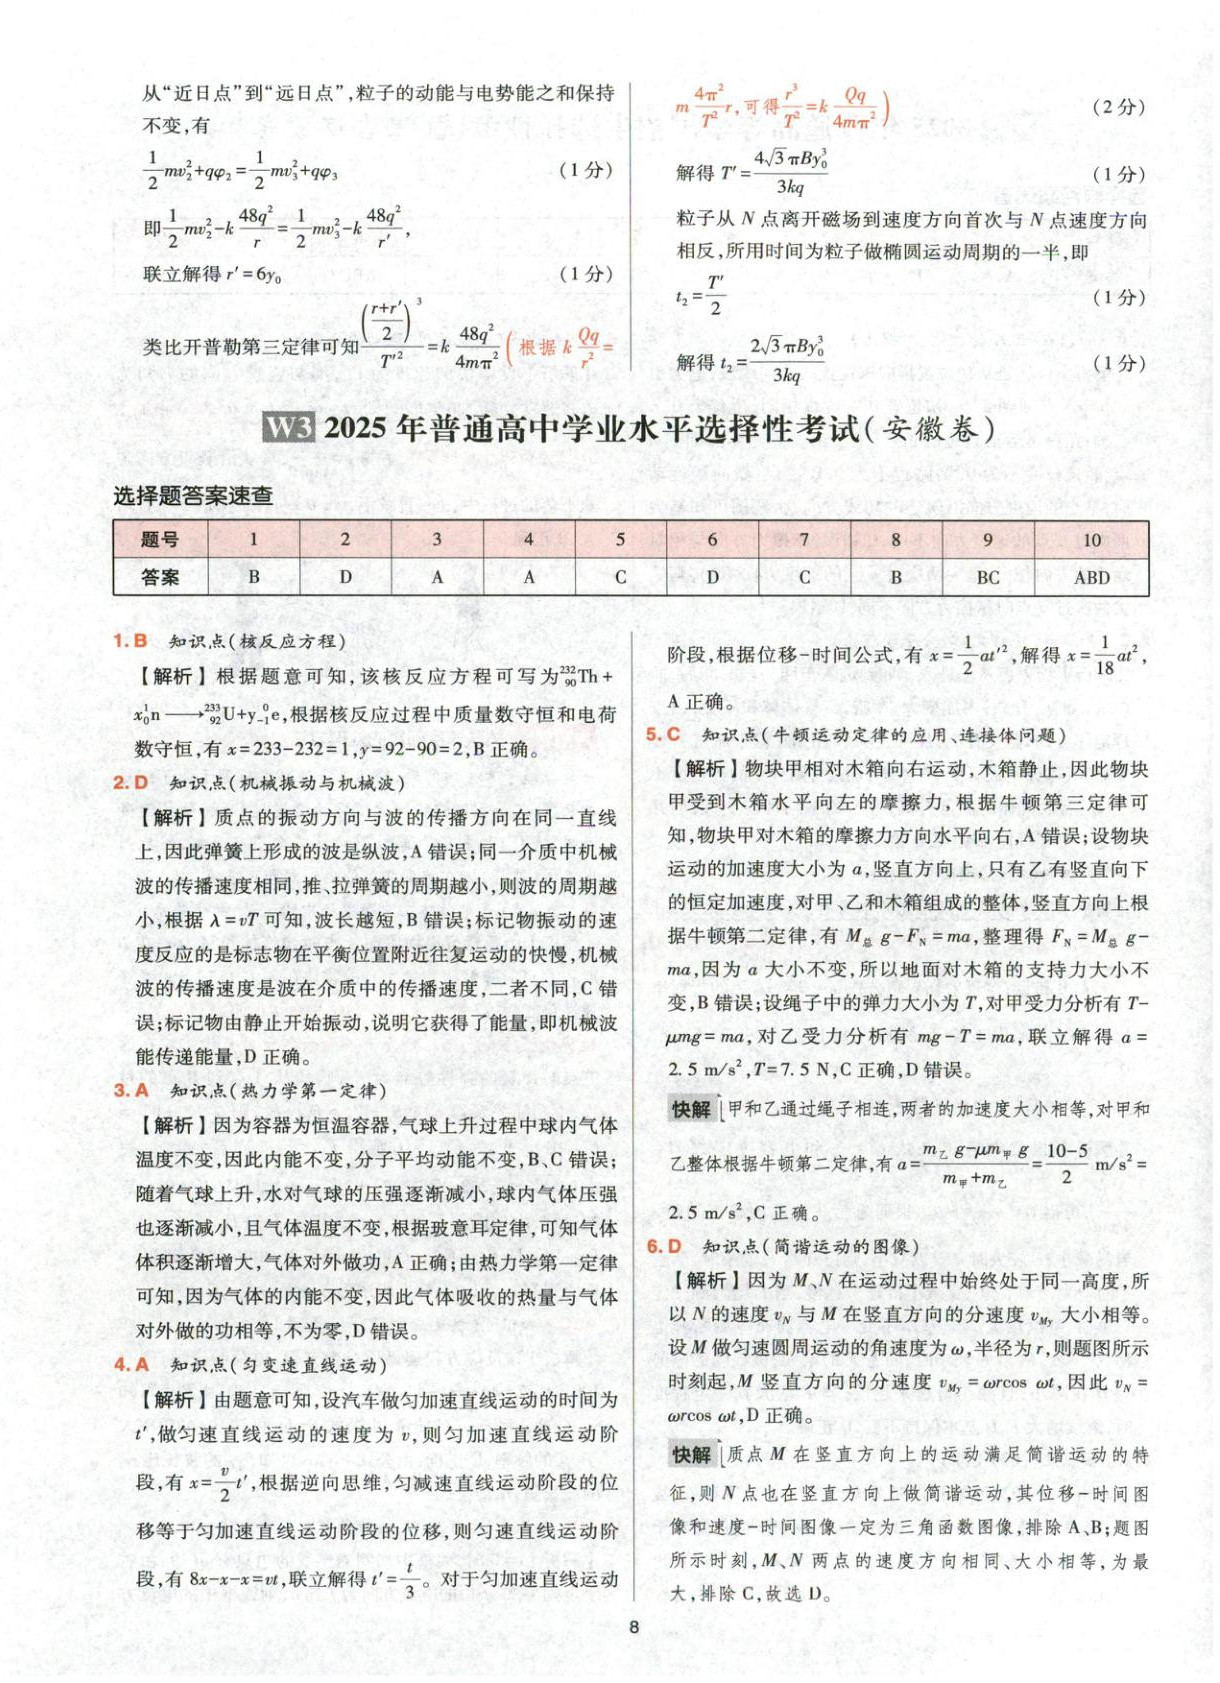 从“近日点”到“远日点”,粒子的动能与电势能之和保持
不变,有
$\frac{1}{2}mv_2^2+q\varphi_2=\frac{1}{2}mv_3^2+q\varphi_3$ (1分)
即$\frac{1}{2}mv_2^2-k\frac{48q^2}{r}=\frac{1}{2}mv_3^2-k\frac{48q^2}{r'}$,
联立解得 $r'=6y_0$ (1分)
类比开普勒第三定律可知$\frac{\left(\frac{r+r'}{2}\right)^3}{T'^2}=k\frac{48q^2}{4m\pi^2}$(根据 $k\frac{Qq}{r^2}=$
$m\frac{4\pi^2}{T^2}r$,可得$\frac{r^3}{T^2}=k\frac{Qq}{4m\pi^2}$) (2分)
解得 $T'=\frac{4\sqrt{3}\pi By_0^3}{3kq}$ (1分)
粒子从 N 点离开磁场到速度方向首次与 N 点速度方向
相反,所用时间为粒子做椭圆运动周期的一半,即
$t_2=\frac{T'}{2}$ (1分)
解得 $t_2=\frac{2\sqrt{3}\pi By_0^3}{3kq}$ (1分)
W3 2025年普通高中学业水平选择性考试(安徽卷)
选择题答案速查
题号 1 2 3 4 5 6 7 8 9 10
答案 B D A A C D C B BC ABD
1.B 知识点(核反应方程)
【解析】根据题意可知,该核反应方程可写为$^{232}_{90}$Th+
$x^1_0$n⟶$^{233}_{92}$U+y$^{0}_{-1}$e,根据核反应过程中质量数守恒和电荷
数守恒,有 x=233-232=1,y=92-90=2,B 正确。
2.D 知识点(机械振动与机械波)
【解析】质点的振动方向与波的传播方向在同一直线
上,因此弹簧上形成的波是纵波,A 错误;同一介质中机械
波的传播速度相同,推、拉弹簧的周期越小,则波的周期越
小,根据 λ=vT 可知,波长越短,B 错误;标记物振动的速
度反应的是标志物在平衡位置附近往复运动的快慢,机械
波的传播速度是波在介质中的传播速度,二者不同,C 错
误;标记物由静止开始振动,说明它获得了能量,即机械波
能传递能量,D 正确。
3.A 知识点(热力学第一定律)
【解析】因为容器为恒温容器,气球上升过程中球内气体
温度不变,因此内能不变,分子平均动能不变,B、C 错误;
随着气球上升,水对气球的压强逐渐减小,球内气体压强
也逐渐减小,且气体温度不变,根据玻意耳定律,可知气体
体积逐渐增大,气体对外做功,A 正确;由热力学第一定律
可知,因为气体的内能不变,因此气体吸收的热量与气体
对外做的功相等,不为零,D 错误。
4.A 知识点(匀变速直线运动)
【解析】由题意可知,设汽车做匀加速直线运动的时间为
t',做匀速直线运动的速度为 v,则匀加速直线运动阶
段,有 $x=\frac{v}{2}t'$,根据逆向思维,匀减速直线运动阶段的位
移等于匀加速直线运动阶段的位移,则匀速直线运动阶
段,有 8x-x-x=vt,联立解得 $t'=\frac{t}{3}$。对于匀加速直线运动
阶段,根据位移-时间公式,有 $x=\frac{1}{2}at'^2$,解得 $x=\frac{1}{18}at^2$,
A 正确。
5.C 知识点(牛顿运动定律的应用、连接体问题)
【解析】物块甲相对木箱向右运动,木箱静止,因此物块
甲受到木箱水平向左的摩擦力,根据牛顿第三定律可
知,物块甲对木箱的摩擦力方向水平向右,A 错误;设物块
运动的加速度大小为 a,竖直方向上,只有乙有竖直向下
的恒定加速度,对甲、乙和木箱组成的整体,竖直方向上根
据牛顿第二定律,有 $M_总g-F_N=ma$,整理得 $F_N=M_总g-$
ma,因为 a 大小不变,所以地面对木箱的支持力大小不
变,B 错误;设绳子中的弹力大小为 T,对甲受力分析有 T-
μmg=ma,对乙受力分析有 mg-T=ma,联立解得 a=
2.5 m/s²,T=7.5 N,C 正确,D 错误。
快解 甲和乙通过绳子相连,两者的加速度大小相等,对甲和
乙整体根据牛顿第二定律,有 $a=\frac{m_乙g-\mu m_甲g}{m_甲+m_乙}=\frac{10-5}{2}$ m/s²=
2.5 m/s²,C 正确。
6.D 知识点(简谐运动的图像)
【解析】因为 M、N 在运动过程中始终处于同一高度,所
以 N 的速度 $v_N$ 与 M 在竖直方向的分速度 $v_{My}$ 大小相等。
设 M 做匀速圆周运动的角速度为 ω,半径为 r,则题图所示
时刻起,M 竖直方向的分速度 $v_{My}$=ωrcos ωt,因此 $v_N$=
ωrcos ωt,D 正确。
快解 质点 M 在竖直方向上的运动满足简谐运动的特
征,则 N 点也在竖直方向上做简谐运动,其位移-时间图
像和速度-时间图像一定为三角函数图像,排除 A、B;题图
所示时刻,M、N 两点的速度方向相同、大小相等,为最
大,排除 C,故选 D。
8